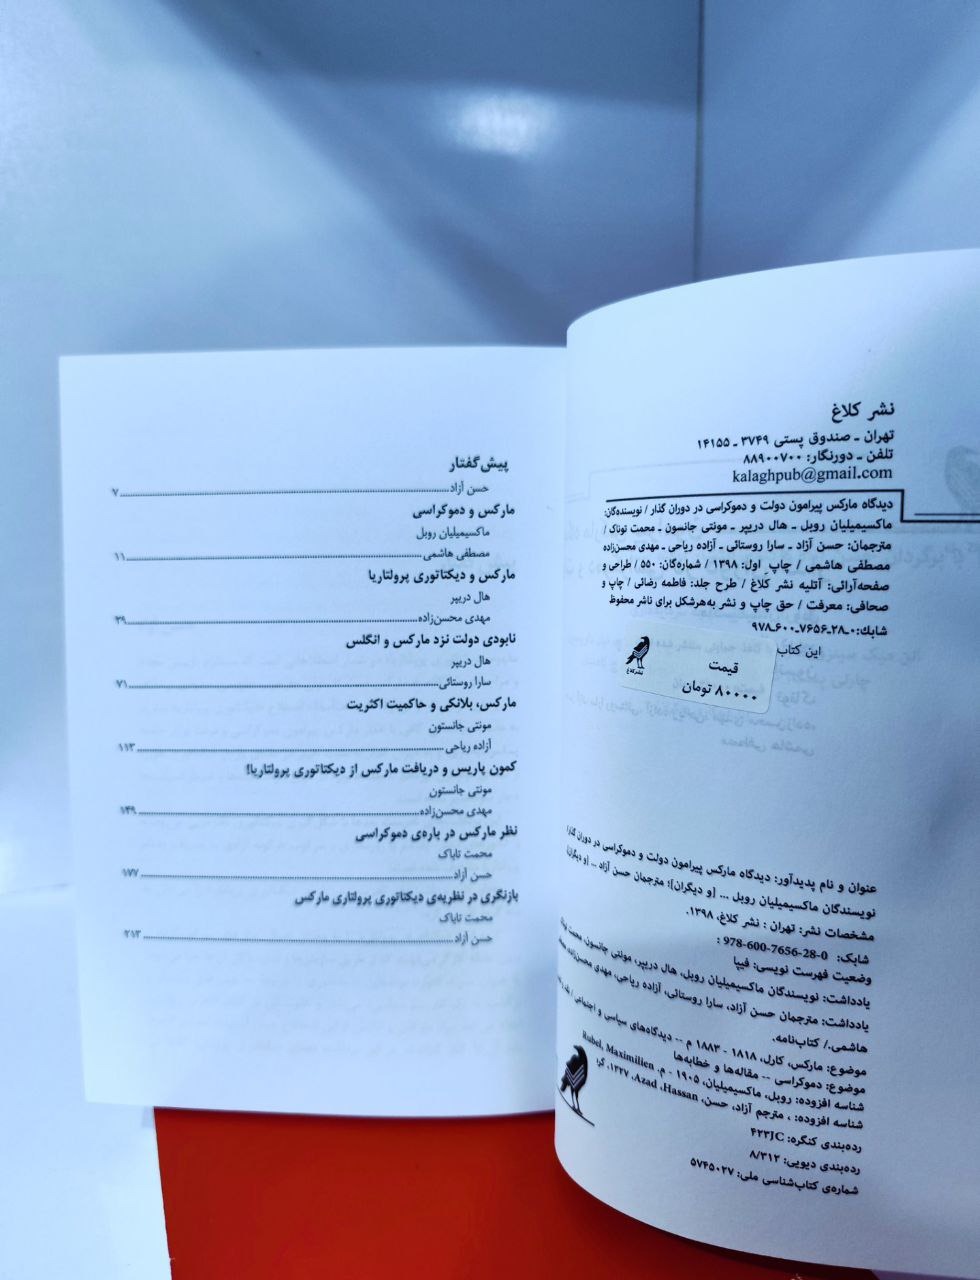 نشر کلاغ
تهران ـ صندوق پستی ۳۷۴۹ ـ ۱۴۱۵۵
تلفن ـ دورنگار: ۸۸۹۰۰۷۰۰
kalaghpub@gmail.com
دیدگاه مارکس پیرامون دولت و دموکراسی در دوران گذار / نویسنده‌گان:
ماکسیمیلیان روبل ـ هال دریپر ـ مونتی جانسون ـ محمت توناک /
مترجمان: حسن آزاد ـ سارا روستائی ـ آزاده ریاحی ـ مهدی محسن‌زاده
مصطفی هاشمی / چاپ ِ اول: ۱۳۹۸ / شماره‌گان: ۵۵۰ / طراحی و
صفحه‌آرائی: آتلیه نشر کلاغ / طرح جلد: فاطمه رضائی / چاپ و
صحافی: معرفت / حق چاپ و نشر به‌هرشکل برای ناشر محفوظ
شابك: ۰ـ۲۸ـ۷۶۵۶ـ۶۰۰ـ۹۷۸
این کتاب
نشر کلاغ
قیمت
۸۰۰۰۰ تومان
عنوان و نام پدیدآور: دیدگاه مارکس پیرامون دولت و دموکراسی در دوران گذار/
نویسندگان ماکسیمیلیان روبل ... [و دیگران]؛ مترجمان حسن آزاد ... [و دیگران]
مشخصات نشر: تهران : نشر کلاغ، ۱۳۹۸.
شابک: 978-600-7656-28-0 :
وضعیت فهرست نویسی: فیپا
یادداشت: نویسندگان ماکسیمیلیان روبل، هال دریپر، مونتی جانسون، محمت
یادداشت: مترجمان حسن آزاد، سارا روستائی، آزاده ریاحی، مهدی محسن‌زاده
هاشمی./ کتاب‌نامه.
موضوع: مارکس، کارل، ۱۸۱۸ - ۱۸۸۳ م -- دیدگاه‌های سیاسی و اجتماعی /
موضوع: دموکراسی -- مقاله‌ها و خطابه‌ها
شناسه افزوده: روبل، ماکسیمیلیان، ۱۹۰۵ - م. Rubel, Maximilien
شناسه افزوده: ، مترجم آزاد، حسن، Azad ،Hassan، ۱۳۲۷،
رده‌بندی کنگره: ۴۲۳JC
رده‌بندی دیویی: ۸/۳۱۲
شماره‌ی کتاب‌شناسی ملی: ۵۷۴۵۰۲۷
پیش‌گفتار
حسن آزاد ... ۷
مارکس و دموکراسی
ماکسیمیلیان روبل
مصطفی هاشمی ... ۱۱
مارکس و دیکتاتوری پرولتاریا
هال دریپر
مهدی محسن‌زاده ... ۳۹
نابودی دولت نزد مارکس و انگلس
هال دریپر
سارا روستائی ... ۷۱
مارکس، بلانکی و حاکمیت اکثریت
مونتی جانستون
آزاده ریاحی ... ۱۱۳
کمون پاریس و دریافت مارکس از دیکتاتوری پرولتاریا!
مونتی جانستون
مهدی محسن‌زاده ... ۱۴۹
نظر مارکس در باره‌ی دموکراسی
محمت تاباک
حسن آزاد ... ۱۷۷
بازنگری در نظریه‌ی دیکتاتوری پرولتاری مارکس
محمت تاباک
حسن آزاد ... ۲۱۳